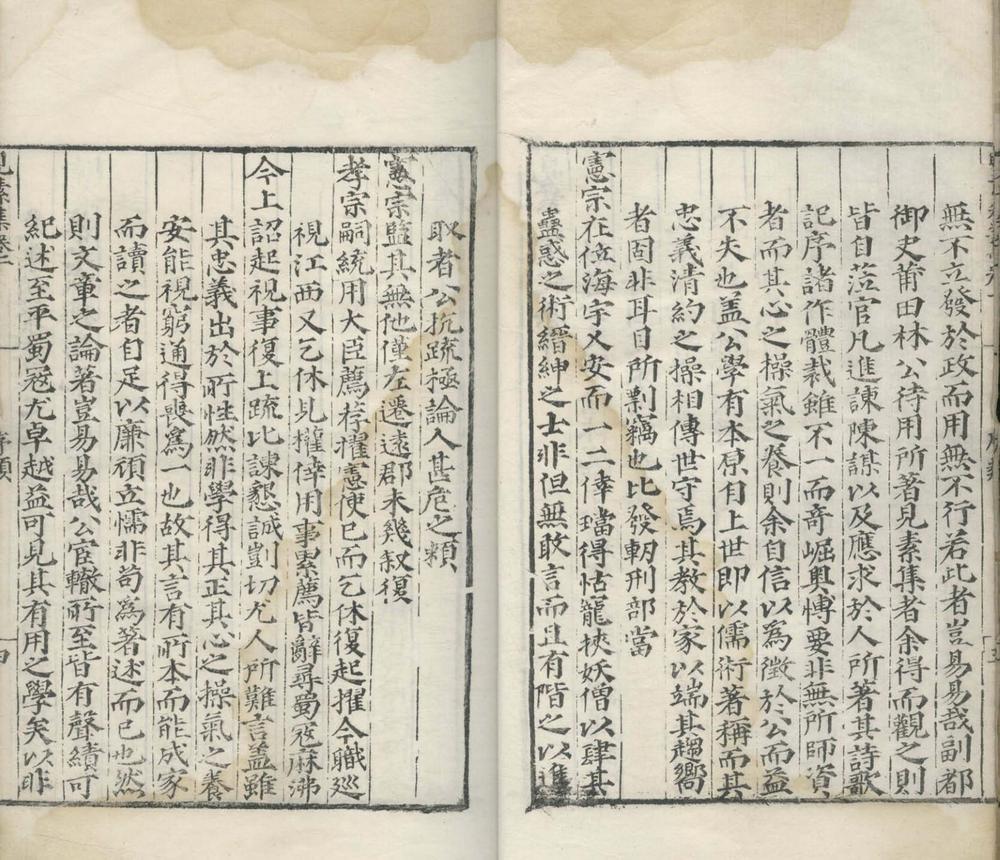 無不立發於政而用無不行若此者豈易易哉副都
御史莆田林公待用所著見素集者余得而觀之則
皆自莅官凡進諫陳謀以及應求於人所著其詩歌
記序諸作體裁雖不一而奇崛奥愽要非無所師資
者而其心之操氣之養則余自信以為徵於公而益
不失也盖公學有本原自上世即以儒術著稱而其
忠義清約之操相傳世守焉其教於家以端其趨嚮
者固非耳目所剽竊也比發軔刑部當
憲宗在位海宇乂安而一二倖璫得怙寵挾妖僧以肆其
蠱惑之術縉紳之士非但無敢言而且有階之以進
取者公抗疏極論人甚危之頼
憲宗監其無他僅左遷遠郡未幾叙復
孝宗嗣統用大臣薦荐擢憲使已而乞休復起擢今職巡
視江西又乞休凡權倖用事累薦皆辭尋蜀冦麻沸
今上詔起視事復上䟽比諫懇誠剴切尤人所難言盖雖
其忠義出於所性然非學得其正其心之操氣之養
安能視窮通得喪為一也故其言有所本而能成家
而讀之者自足以廉頑立懦非苟為著述而已也然
則文章之論著豈易易哉公宦轍所至皆有聲績可
紀述至平蜀冦尤卓越益可見其有用之學矣以非
見素集卷 序類 四